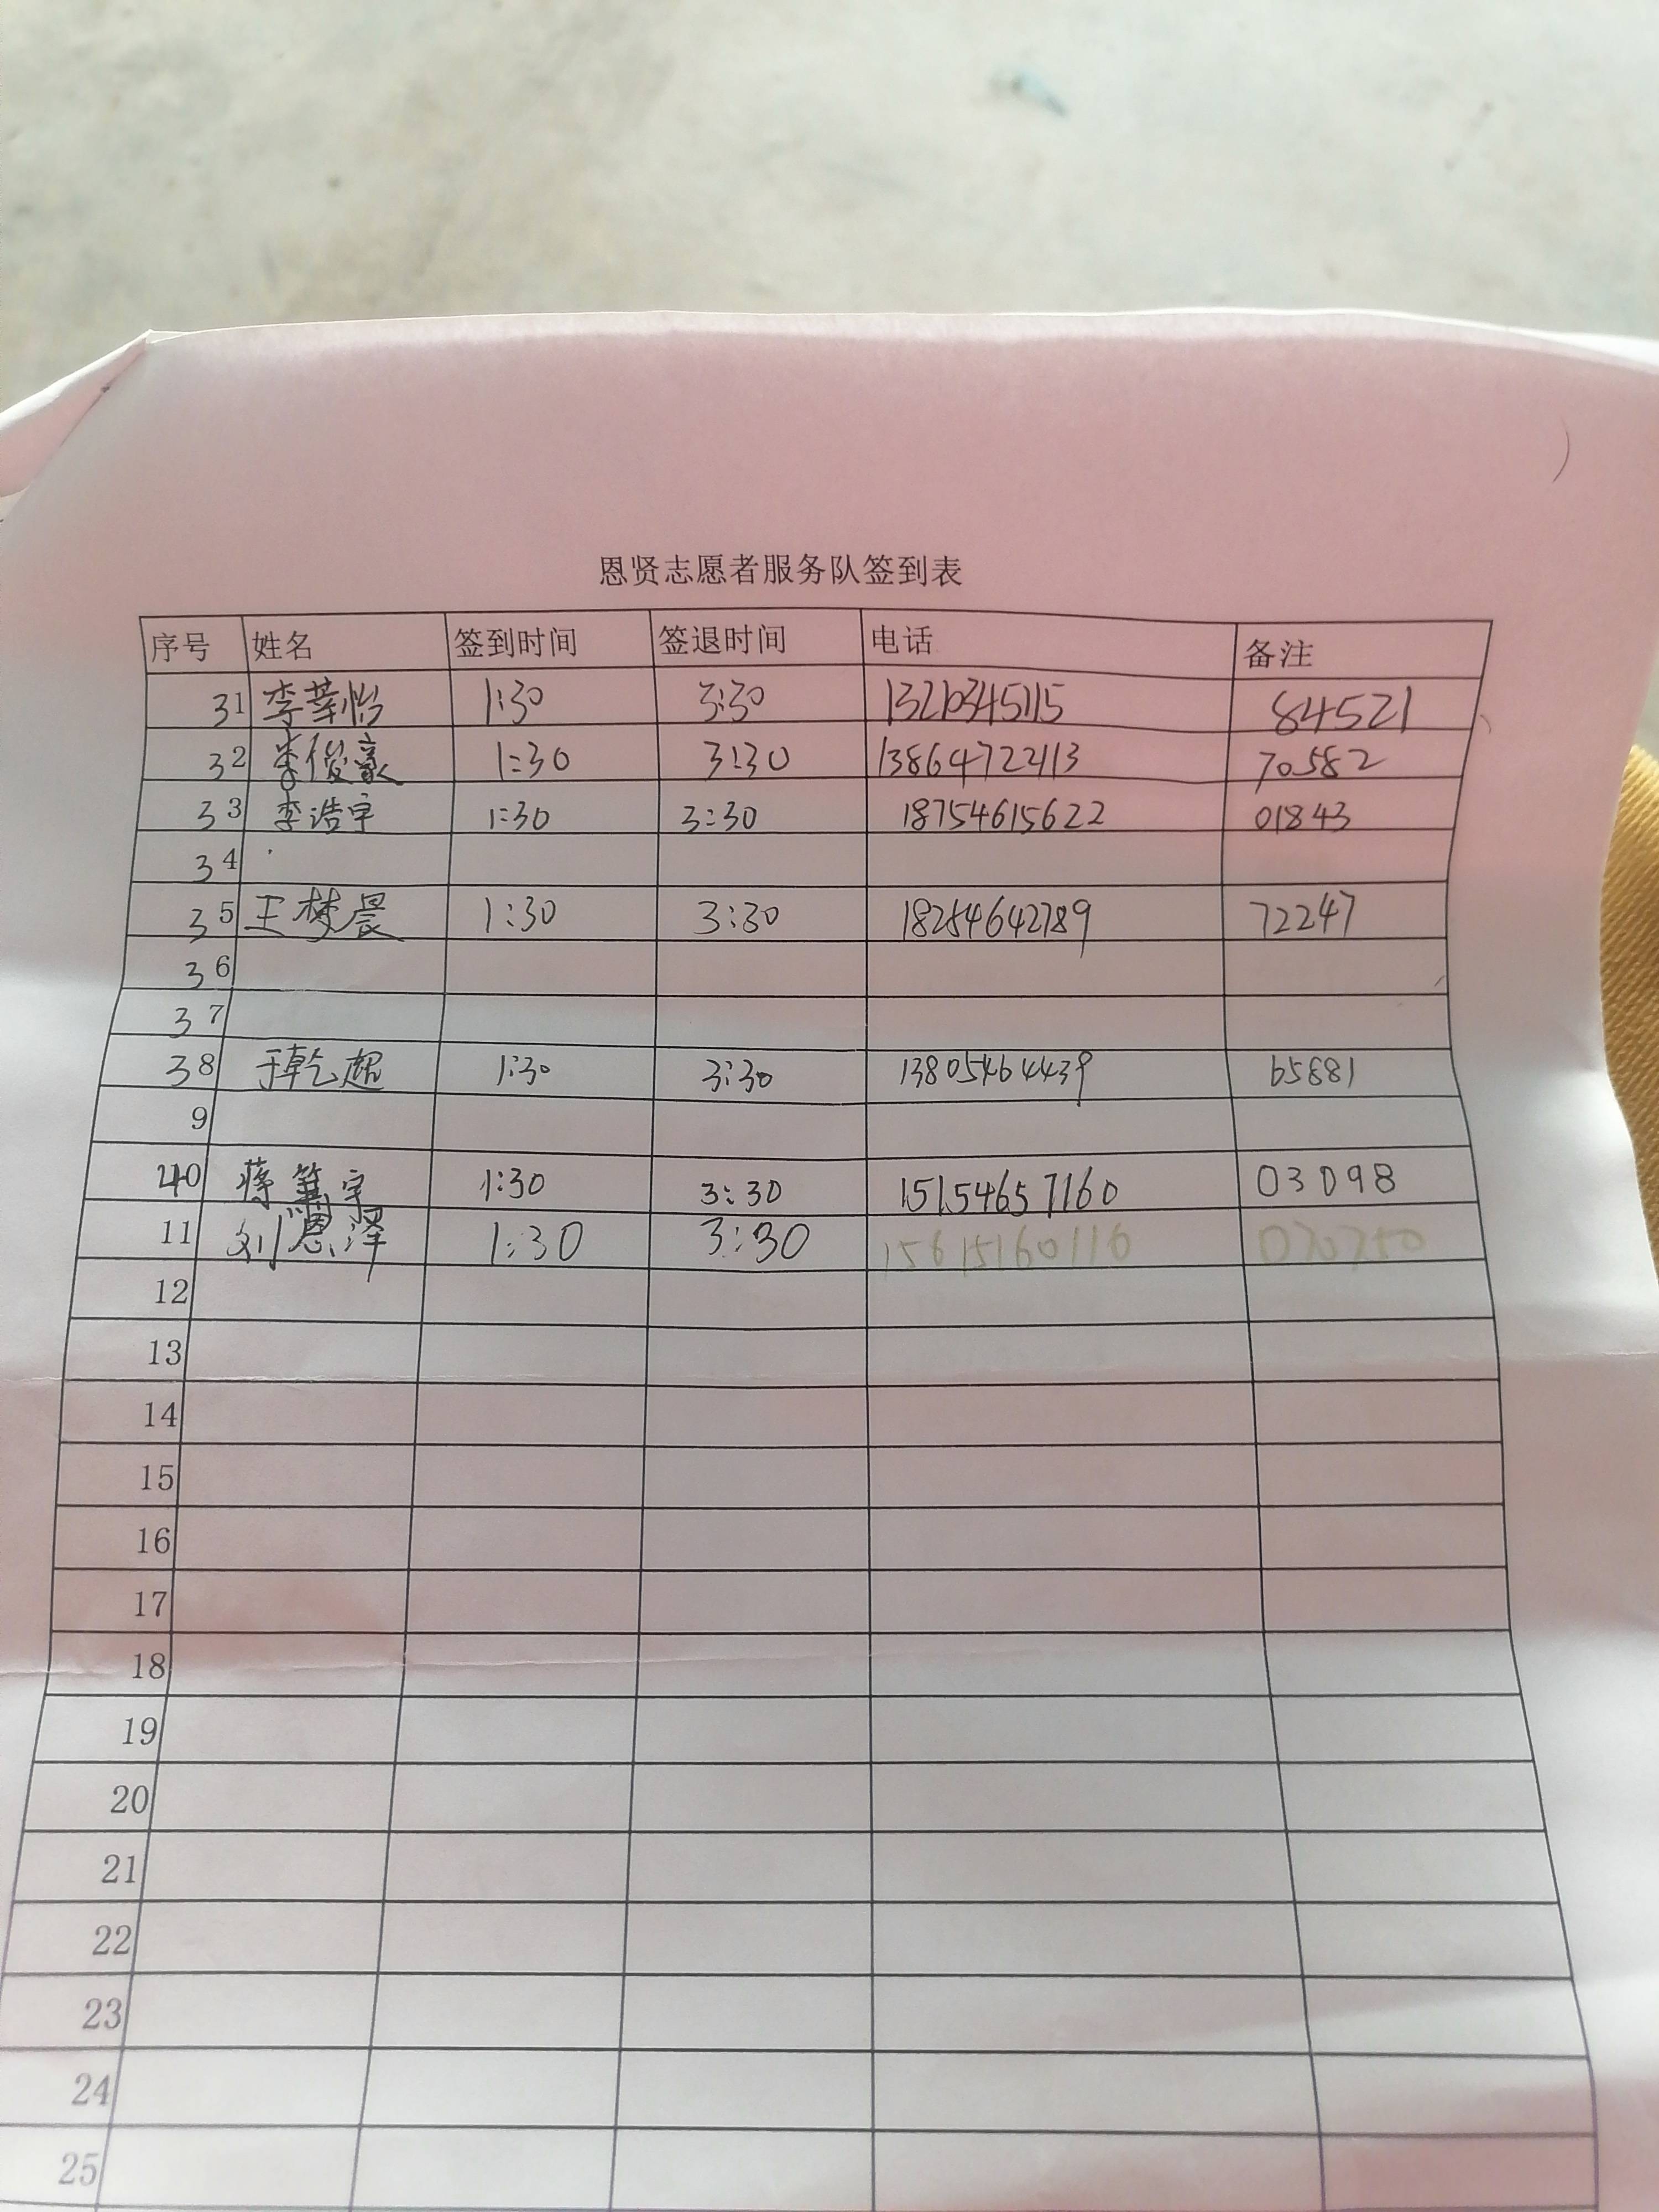 恩贤志愿者服务队签到表
序号 姓名 签到时间 签退时间 电话 备注
31 李莘怡 1:30 3:30 13210345115 84521
32 李俊豪 1:30 3:30 13864722113 70582
33 李浩宇 1:30 3:30 18754615622 01843
34
35 王梦晨 1:30 3:30 18254642789 72247
36
37
38 于乾超 1:30 3:30 13805464439 65881
9
40 蒋 宇 1:30 3:30 15154657160 03098
11 刘恩泽 1:30 3:30 15615160116
12
13
14
15
16
17
18
19
20
21
22
23
24
25